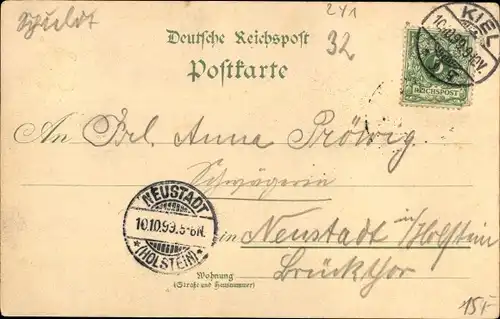 241
32
Deutsche Reichspost
Postkarte
KIEL
10.10.99.
REICHSPOST
An Frl. Anna Pröwig.
Schwägerin
NEUSTADT
10.10.99.5-6N.
*(HOLSTEIN)*
in Neustadt in/Holstein
Brückthor
Wohnung
(Straße und Hausnummer)
15,-